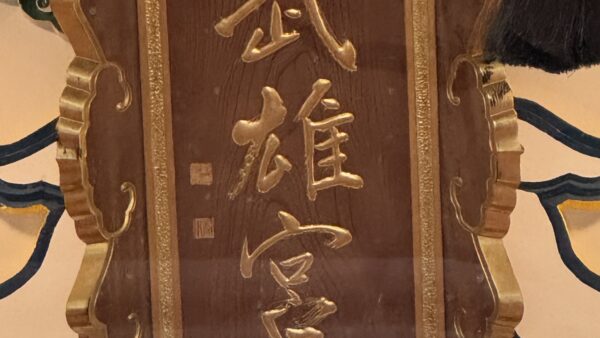 武雄宮